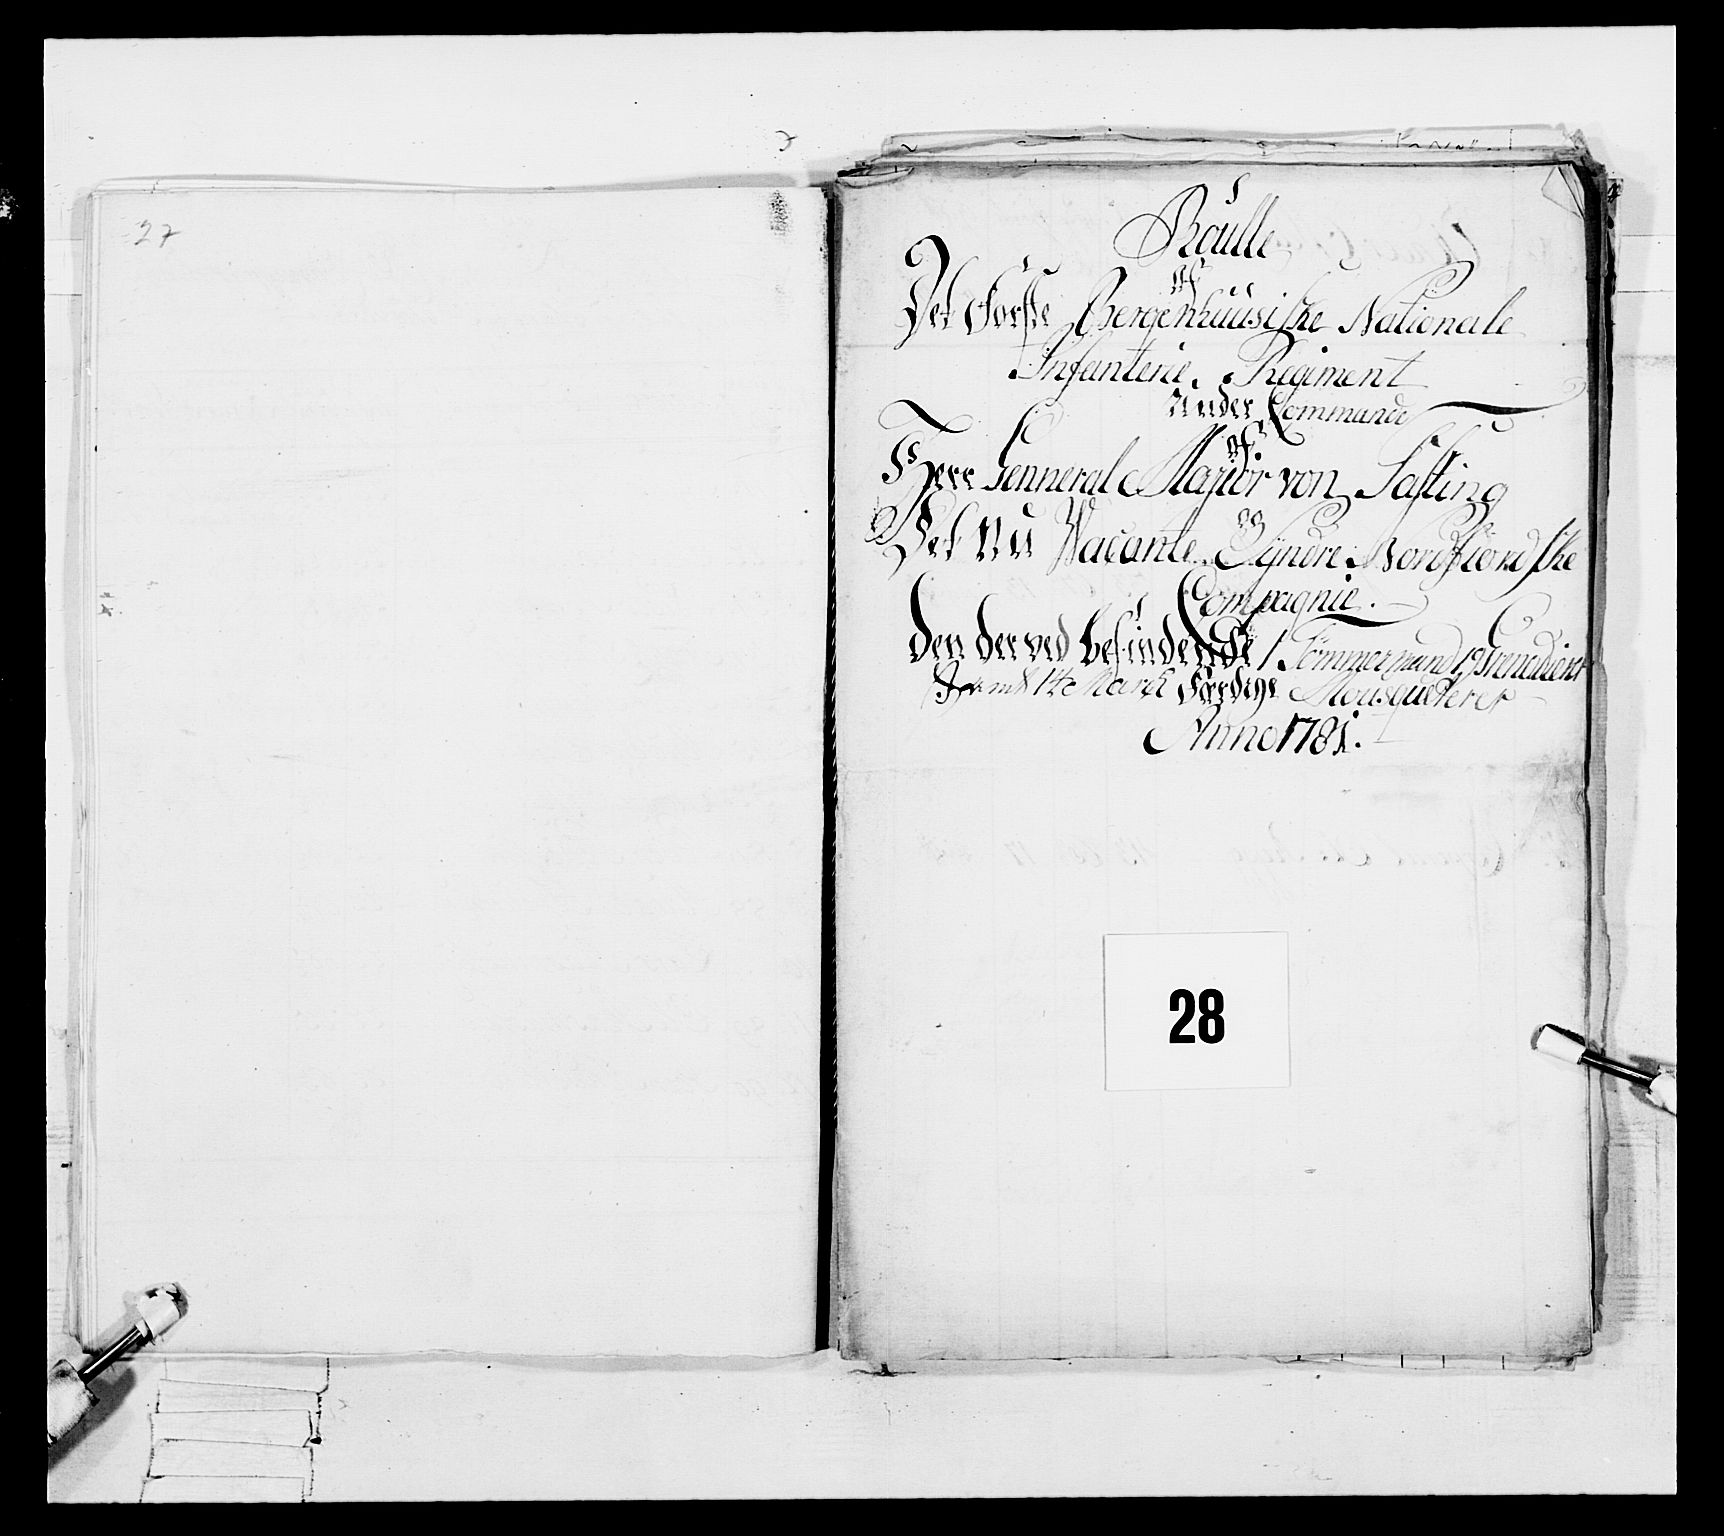 27
Roulle
af
Det Første Bergenhuusiske Nationale
Infanterie Regiment
Under Commando
af
Herr Genneral Major von Fasting
og
Det Nu Vacante Syndre Nordfiordske
Compagnie.
den derved befindende 1 Tømmermand, 19 Grenedierer
samt 14 March Færdige Mousqueterer
Anno 1781.
28